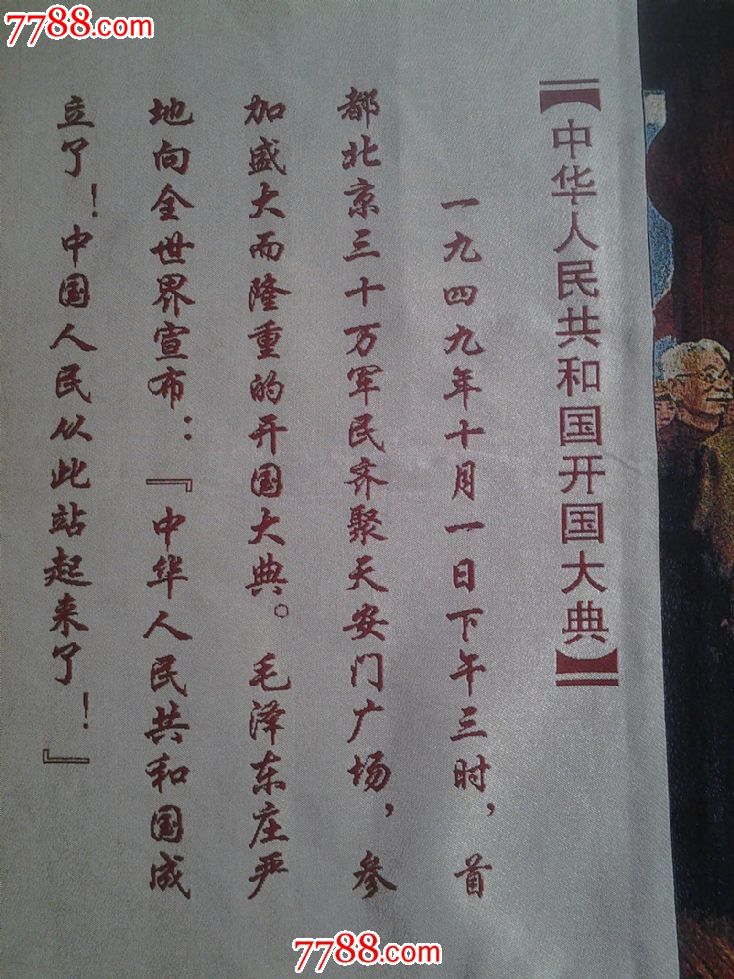 7788.com
【中华人民共和国开国大典】
一九四九年十月一日下午三时，首
都北京三十万军民齐聚天安门广场，参
加盛大而隆重的开国大典。毛泽东庄严
地向全世界宣布：『中华人民共和国成
立了！中国人民从此站起来了！』
7788.com